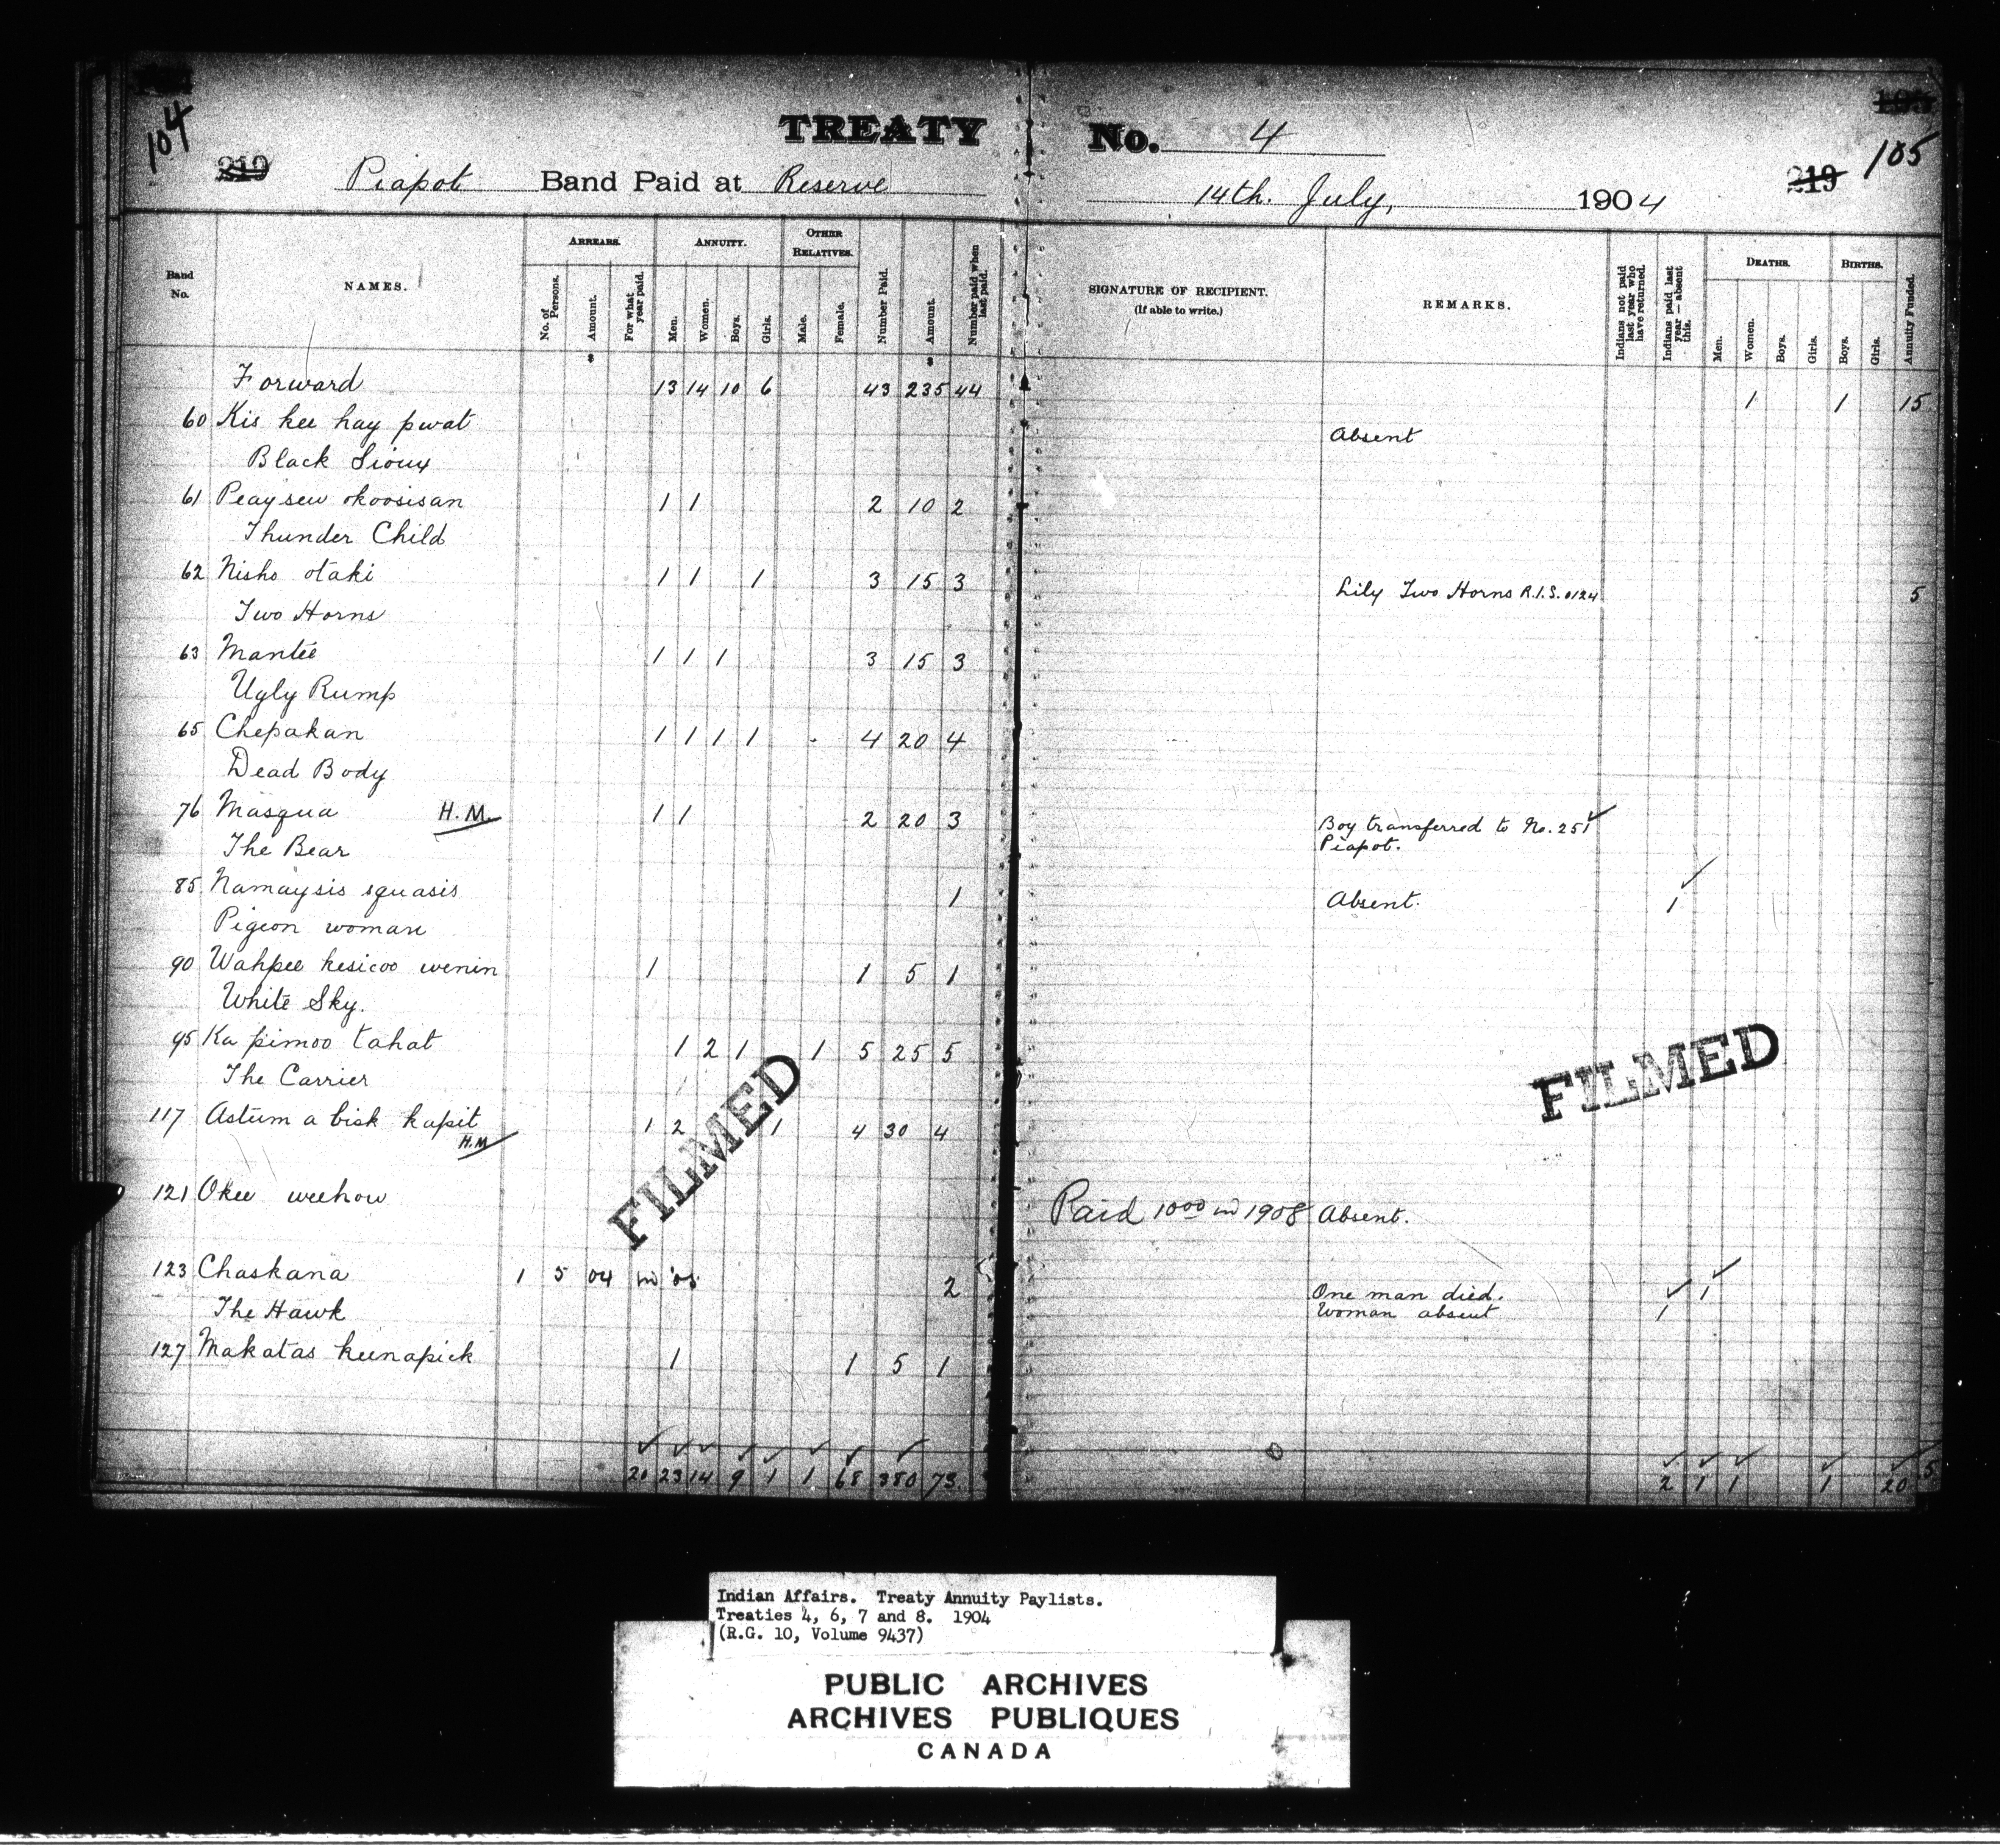 104
105
TREATY No. 4
219 Piapot Band Paid at Reserve 14th. July, 1904 219
Band No.
NAMES.
ARREARS.
No. of Persons.
Amount.
For what year paid.
ANNUITY.
Men.
Women.
Boys.
Girls.
OTHER RELATIVES.
Male.
Female.
Number Paid.
Amount.
Number paid when last paid.
SIGNATURE OF RECIPIENT.
(If able to write.)
REMARKS.
Indians not paid last year who have returned.
Indians paid last year — absent this.
DEATHS.
Men.
Women.
Boys.
Girls.
BIRTHS.
Boys.
Girls.
Annuity Funded.
$ $
Forward 13 14 10 6 43 235 44 1 1 15
60 Kis kee hay pwat Absent
Black Sioux
61 Peaysew okoosisan 1 1 2 10 2
Thunder Child
62 Nisho otaki 1 1 1 3 15 3 Lily Two Horns R.I.S. 0124 5
Two Horns
63 Mantee 1 1 1 3 15 3
Ugly Rump
65 Chepakan 1 1 1 1 4 20 4
Dead Body
76 Masqua H.M. 1 1 2 20 3 Boy transferred to No. 251 ✓
The Bear Piapot.
85 Namaysis squasis 1 Absent. 1 ✓
Pigeon woman
90 Wahpee kesicoo wenin 1 1 5 1
White Sky.
95 Ka pimoo tahat 1 2 1 1 5 25 5
The Carrier
117 Astum a bisk kapit 1 2 1 4 30 4
H.M
121 Okee weehow Paid 10 00 in 1908 Absent.
123 Chaskana 1 5 04 in '05. 2 One man died. ✓ 1 ✓
The Hawk Woman absent 1
127 Makatas keenapick 1 1 5 1
20 23 14 9 1 1 68 380 73 2 1 1 1 20 5
FILMED
FILMED
Indian Affairs. Treaty Annuity Paylists.
Treaties 4, 6, 7 and 8. 1904
(R.G. 10, Volume 9437)
PUBLIC ARCHIVES
ARCHIVES PUBLIQUES
CANADA